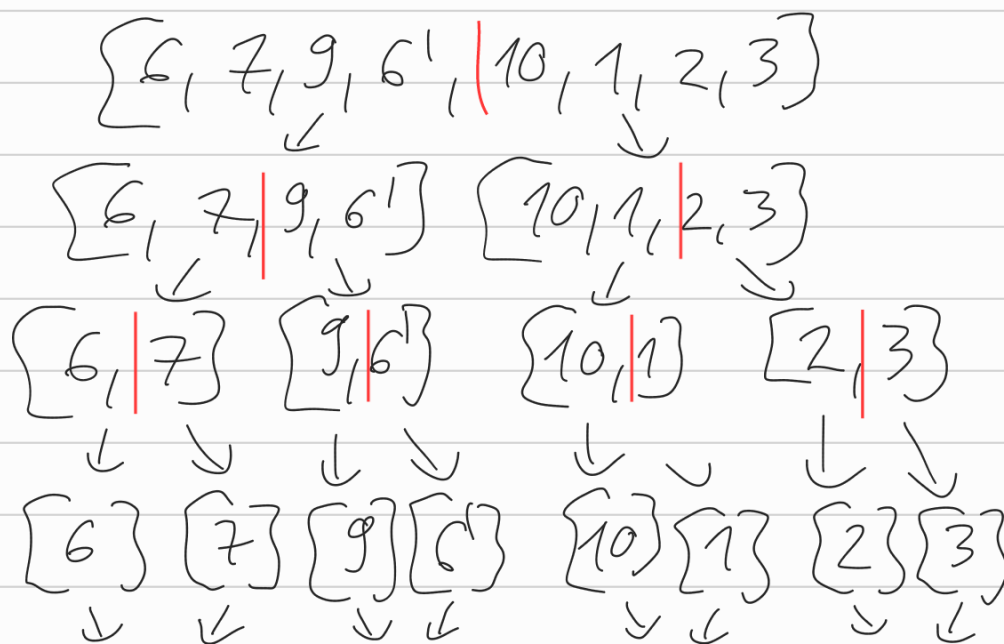 [6, 7, 9, 6', 10, 1, 2, 3]
[6, 7, 9, 6'] [10, 1, 2, 3]
[6, 7] [9, 6'] [10, 1] [2, 3]
[6] [7] [9] [6'] [10] [1] [2] [3]